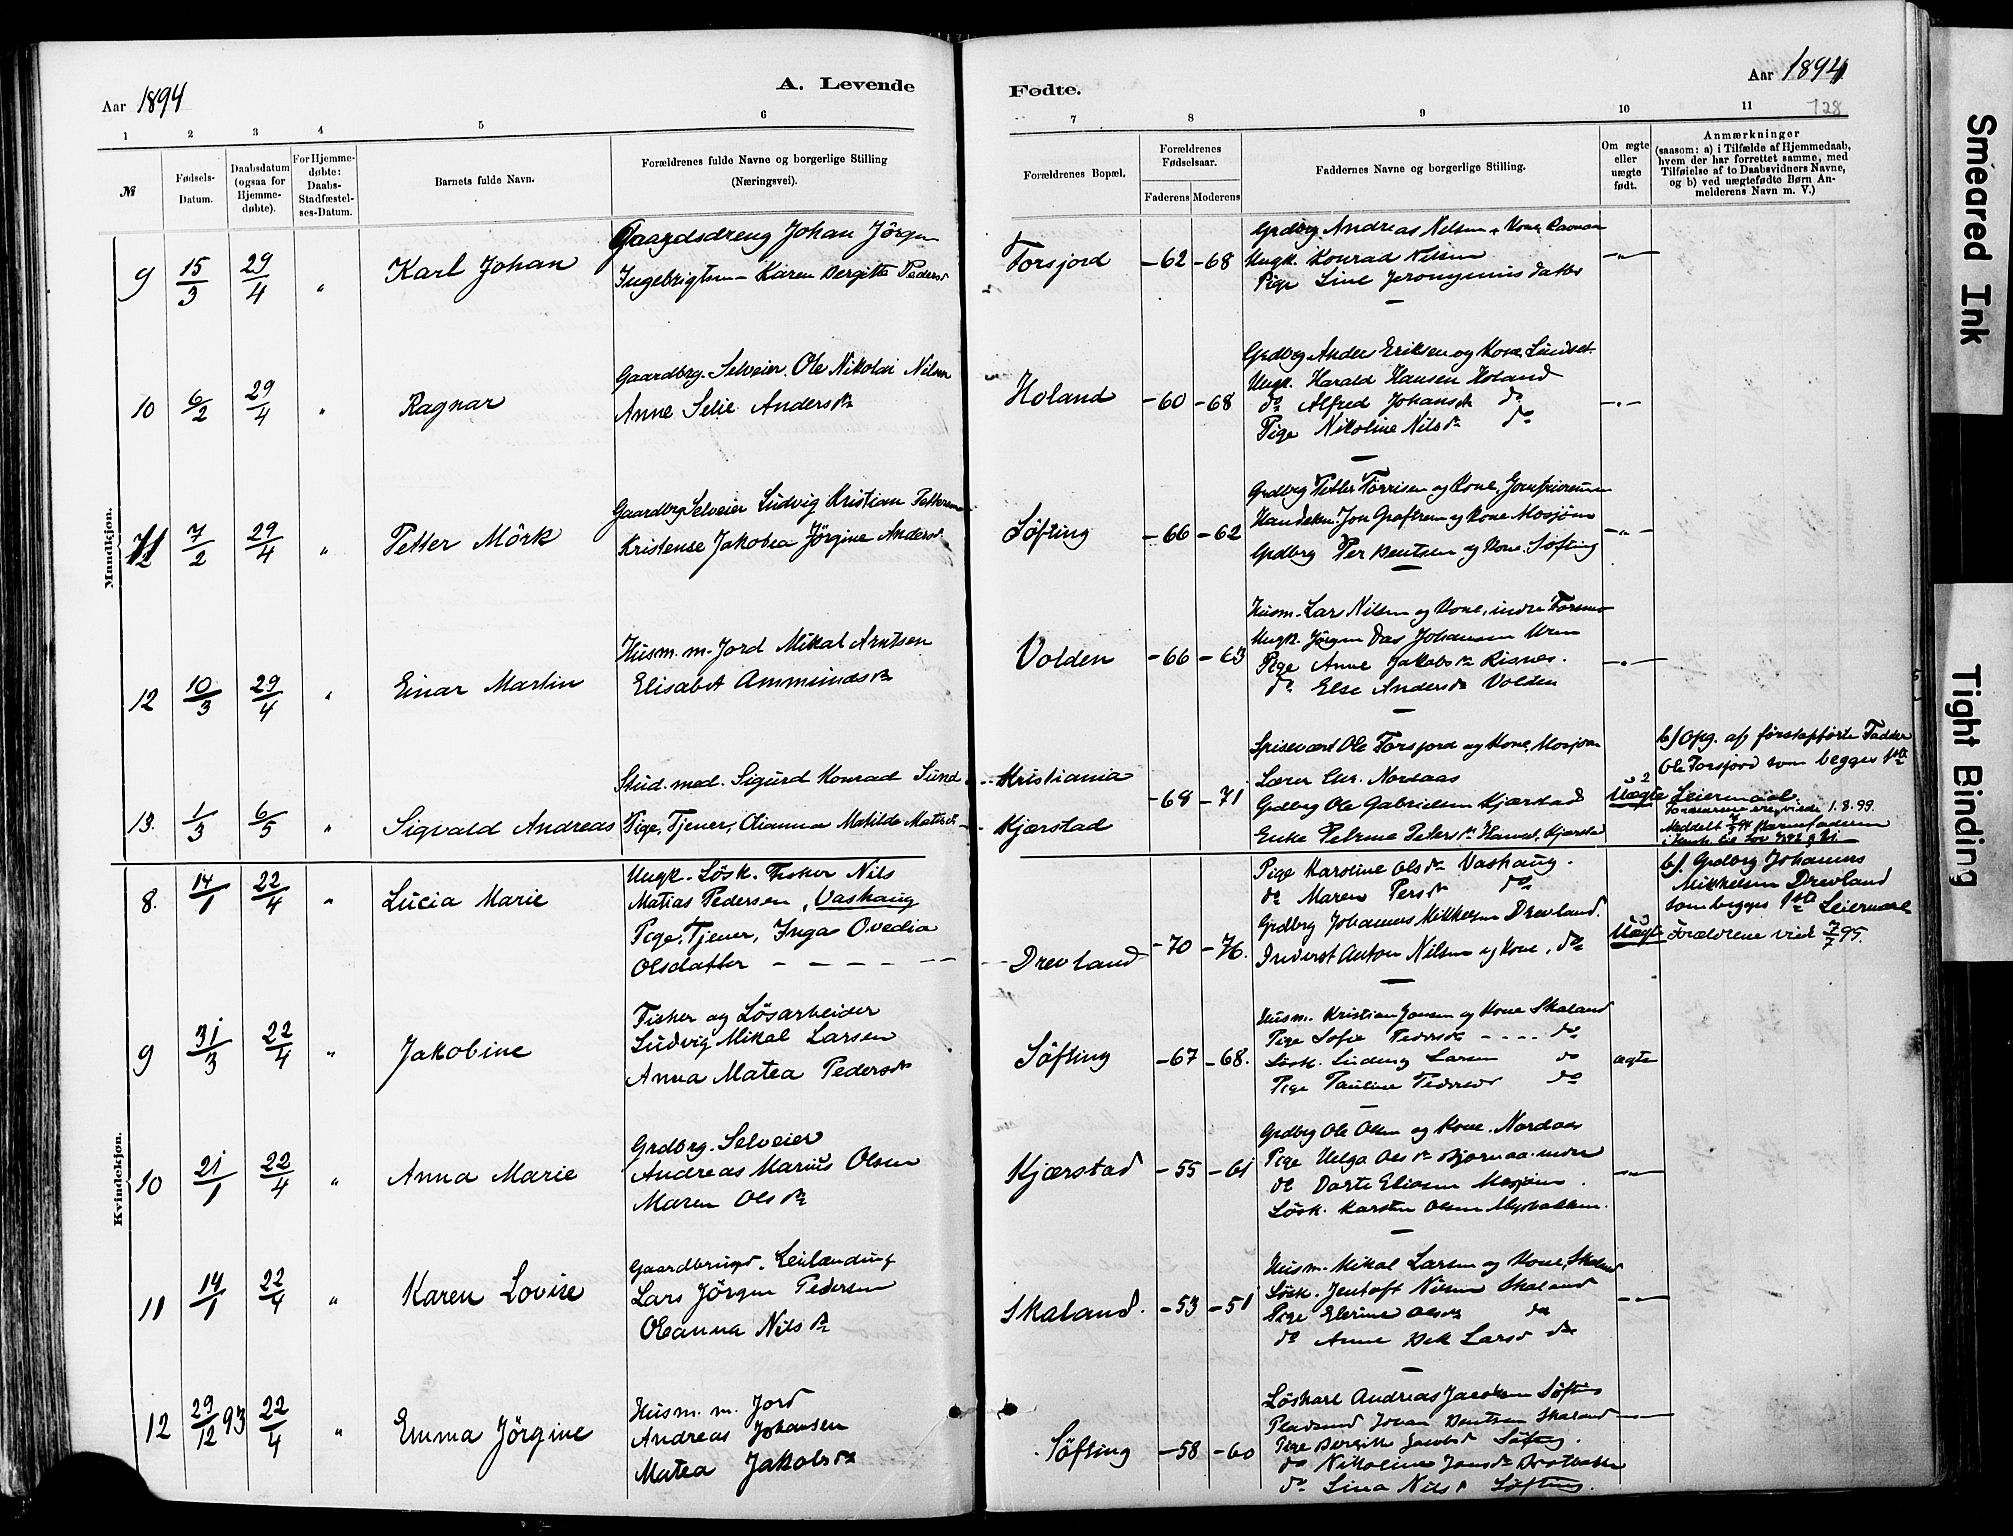 Aar 1894
A. Levende
Fødte.
Aar 1894
128
1 2 3 4 5 6 7 8 9 10 11
№
Fødsels-Datum.
Daabsdatum (ogsaa for Hjemme-døbte).
For Hjemme-døbte: Daabs-Stadfæstel-ses-Datum.
Barnets fulde Navn.
Forældrenes fulde Navne og borgerlige Stilling (Næringsvei).
Forældrenes Bopæl.
Forældrenes Fødselsaar.
Faderens Moderens
Faddernes Navne og borgerlige Stilling.
Om ægte eller uægte født.
Anmærkninger
(saasom: a) i Tilfælde af Hjemmedaab,
hvem der har forrettet samme, med
Tilføielse af to Daabsvidners Navne,
og b) ved uægtefødte Børn An-
melderens Navn m. V.)
Mandkjøn.
9 15/3 29/4 " Karl Johan
Gaardsdreng Johan Jörgen
Ingebrigtsen - Karen Bergitte Pedersd
Forsjord -62 -68
Grdbrg Andreas Nilsen & Kone
Ungk. Konrad Nilsen
Pige Line Jeronymus datter
-"-
10 6/2 29/4 " Ragnar
Gaardbrg. Selveier. Ole Nikolai Nilsen
Anne Selie Andersdr
Holand -60 -68
Grdbrg Anders Eriksen og Kone
Ungk. Harald Hansen Holand
do Alfred Johansen do
Pige Nikoline Nilsdr do
-"-
11 7/2 29/4 " Petter Mörk
Gaardbrg Selveier Ludvig Kristian Pettersen
Kristense Jakobea Jörgine Andersd
Söfting -66 -62
Grdbrg Petter Torrisen og Kone
Handelsm. Jon Groftrem og Kone Mosjøen
Grdbrg Per Bentsen og Kone. Söfting
-"-
12 10/3 29/4 " Einar Martin
Husm. m. Jord Mikal Arntsen
Elisabet Ammundsdr
Volden -66 -63
Husm. Lars Nilsen og Kone, indre Forsmo
Ungk. Jörgen Johansen
Pige Anne Jakobsdr Risnes.
do Else Andersdr Volden
-"-
13. 1/3 6/5 " Sigvald Andreas
Stud. med. Sigurd Konrad Sund
Pige, Tjener, Olianna Matilde
Kristiania
Kjærstad
-68 -71
Spisevært Ole Forsjord og Kone, Mosjøen
Lærer Nordaas
Grdbrg Ole Gabrielsen Kjærstad
Enke Petersdr Kjærstad
Uægte
b/ opg. af förstopförte Fadder
Ole Forsjord som begges 1ste
Leiermaal
1.8.99.
Kvindekjøn.
8. 14/1 22/4 " Lucia Marie
Ungk. Lösk. Fisker Nils
Matias Pedersen, Vashaug
Pige, Tjener, Inga Ovedia
Olsdatter - - - -
Drevland -70 -76.
Pige Karoline Olsdr Vashaug.
do Maren Persdr do
Grdbrg Johannes Mikkelsen Drevland.
Inderst Anton Nilsen og Kone, do
Uægte
b/. Grdbrg Johannes
Mikkelsen Drevland
som begges 1ste Leiermaal
Forældrene viede 7/7 95.
9 31/3 22/4 " Jakobine
Fisker og Lösarbeider
Ludvig Mikal Larsen
Anna Matea Pedersdr
Söfting -67 -68.
Husm. Kristian Jonsen og Kone Skaland
Pige Sofie Pedersdr - - - - do
Lösk. Ludvig Larsen do
Pige Pauline Pedersdr do
ægte
10 21/1 22/4 " Anna Marie
Grdbrg. Selveier
Andreas Marius Olsen
Maren Olsdr
Kjærstad -55 -61
Grdbrg Ole Olsen og Kone. Nordaas
Pige Helga Olsdr Bjornaa indre
do Dorte Eliasen Mosjøen.
Lösk. Karsten Olsen
-"-
11 14/1 22/4 " Karen Lovise
Gaardbruger. Leilænding
Lars Jörgen Pedersen
Oleanna Nilsdr
Skaland. -53 -51
Husm. Mikal Larsen og Kone, Skaland
Lösk. Jentoft Nilsen Skaland
Pige Elerine Olsdr do
do Anne Larsd do
-"-
12 29/12 93 22/4 " Emma Jörgine
Husm. m. Jord
Andreas Johansen
Matea Jakobsdr
Söfting -58 -60
Löskarl Andreas Jacobsen Söfting
Johan Bentsen Skaland
Pige Bergitte Jacobsd Söfting.
do Nikoline Jonsdr
do Lina Nilsd Söfting.
Smeared Ink
Tight Binding